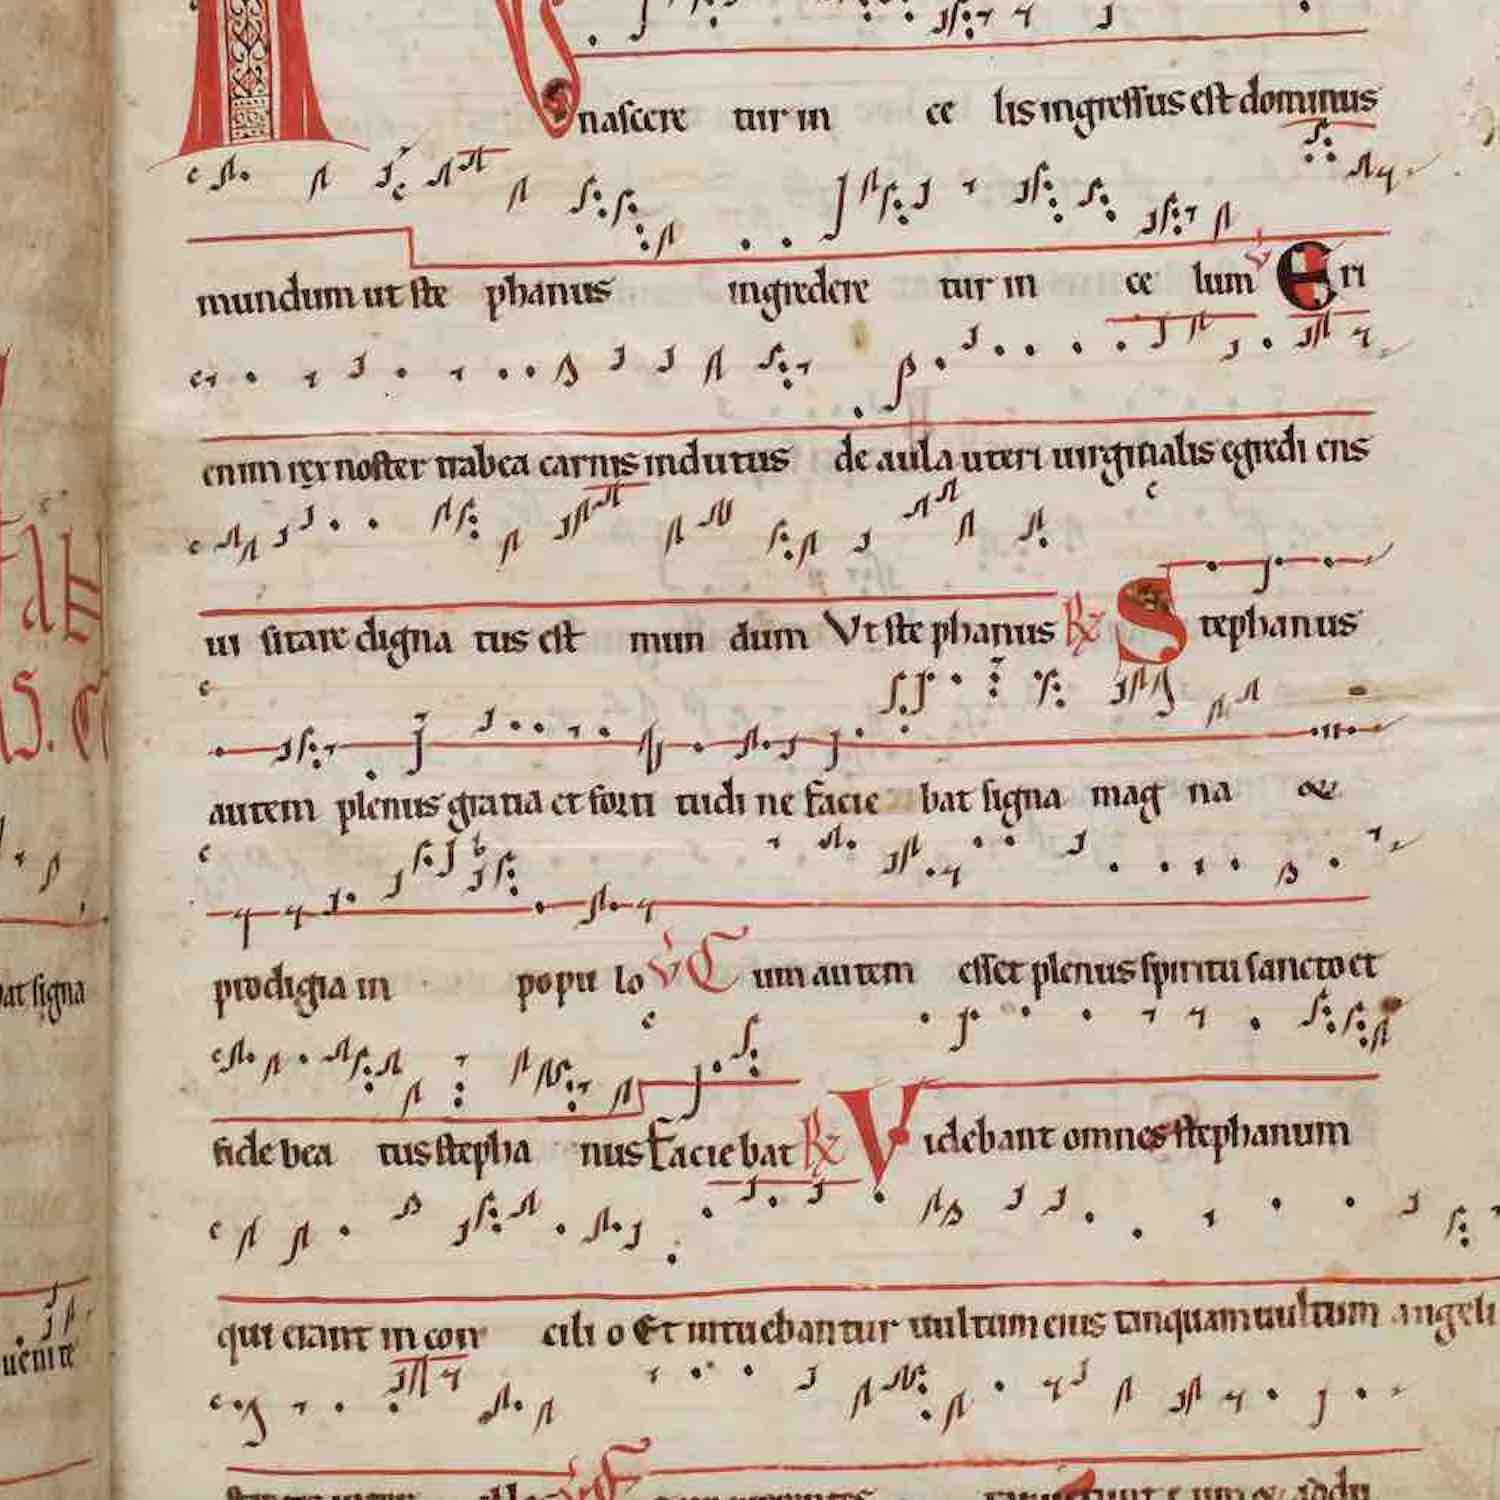 nascere tur in ce lis ingressus est dominus
mundum ut ste phanus ingredere tur in ce lum V Eri
enim rex noster trabea carnis indutus de aula uteri uirginalis egredi ens
ui sitare digna tus est mun dum Vt ste phanus R Stephanus
autem plenus gratia et forti tudi ne facie bat signa mag na &
prodigia in popu lo V Cum autem esset plenus spiritu sancto et
fide bea tus stepha nus Facie bat R Videbant omnes stephanum
qui erant in con cili o Et intuebantur uultum eius tanquam uultum angeli
bat signa
uenite